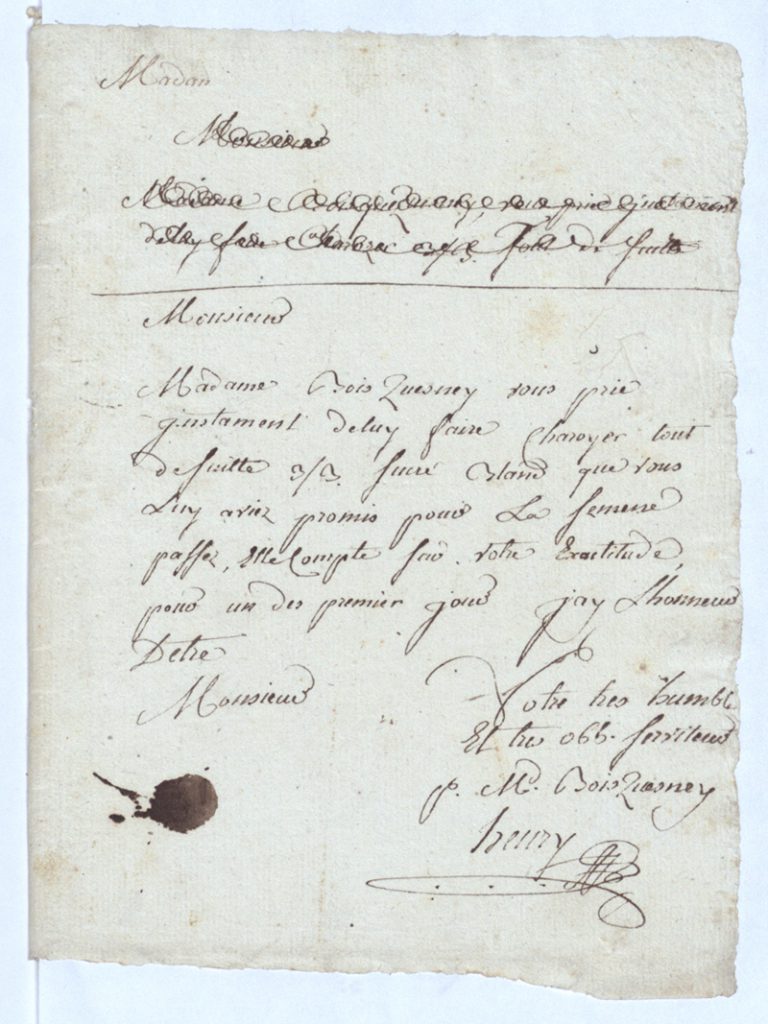 Madam
Monsieur
Madame Boisquesnay vous prie justament
deluy faire 3/3. Tout de suitte
Monsieur
Madame Bois Quesney vous prie
justament deluy faire Charoyer tout
de suitte 3/3. sucre Blanc que vous
Luy aviez promis pour La semene
passez, Elle Compte sur votre Exactitude,
pour un des premier jour jay Lhonneur
Detre
Monsieur
Votre tres humble
Et tres obb. serviteur
p. Md. Bois Quesney
henry